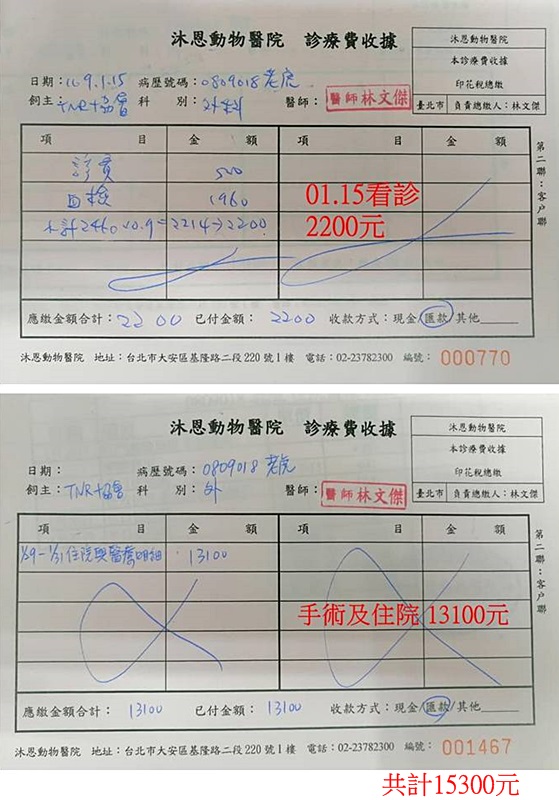 沐恩動物醫院 診療費收據
沐恩動物醫院
本診療費收據
印花稅總繳
臺北市 負責總繳人：林文傑
日期：109.1.15 病歷號碼：0809018 老虎
飼主：TNR協會 科 別：外科 醫師：醫師林文傑
項 目 金 額 項 目 金 額
診費 500
血檢 1960
小計2460×0.9=2214→2200
01.15看診
2200元
應繳金額合計：2200 已付金額：2200 收款方式：現金/匯款/其他
沐恩動物醫院 地址：台北市大安區基隆路二段220號1樓 電話：02-23782300 編號：000770
第二聯：客戶聯
沐恩動物醫院 診療費收據
沐恩動物醫院
本診療費收據
印花稅總繳
臺北市 負責總繳人：林文傑
日期： 病歷號碼：0809018 老虎
飼主：TNR協會 科 別：外 醫師：醫師林文傑
項 目 金 額 項 目 金 額
1/29-1/31住院與醫療明細 13100
手術及住院 13100元
應繳金額合計：13100 已付金額：13100 收款方式：現金/匯款/其他
沐恩動物醫院 地址：台北市大安區基隆路二段220號1樓 電話：02-23782300 編號：001467
第二聯：客戶聯
共計15300元